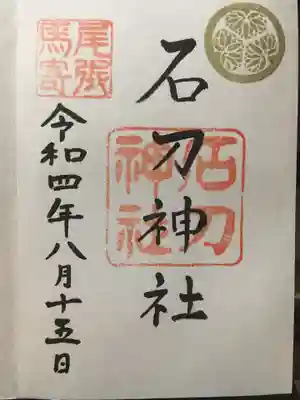 石刀神社
石刀
神社
尾張
馬寄
令和四年八月十五日